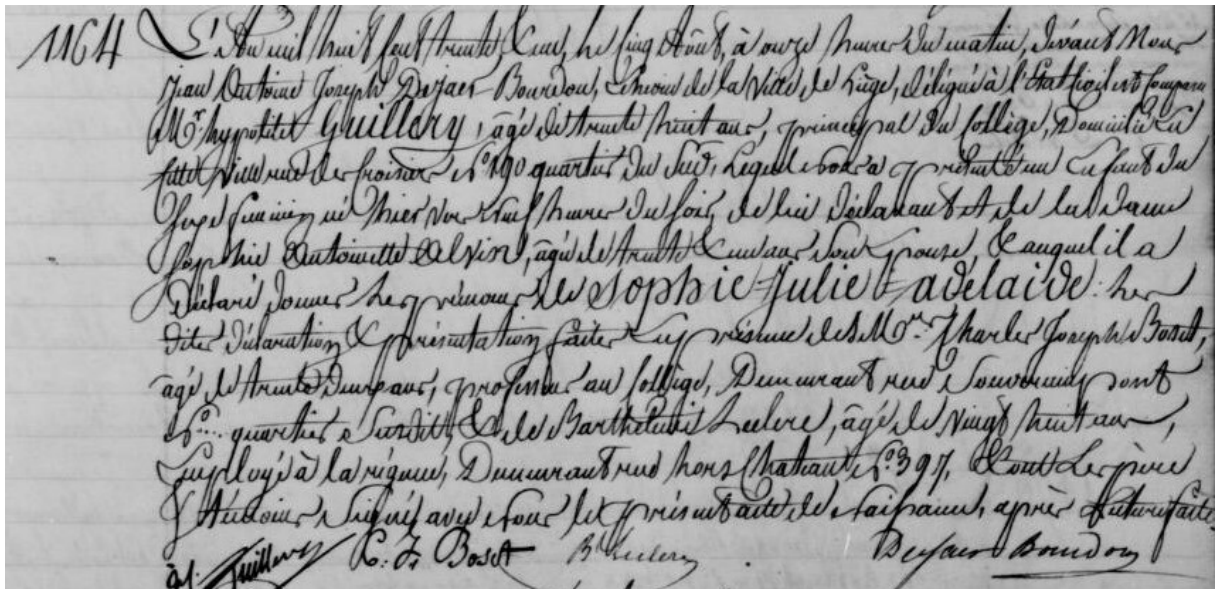 1164 L'An mil huit cent trente un, le cinq Août, à onze heures du matin, devant Nous
Jean Antoine Joseph Dejaer Bourdon, Echevin de la Ville de Liège, délégué à l'Etat Civil est comparu
Mr. hyppolite Guillery, âgé de trente huit ans, principal du Collège, Domicilié en
cette Ville rue des Croisiers No. 190 quartier du Sud, lequel nous a présenté un Enfant du
Sexe féminin né hier vers neuf heures du soir, de lui Déclarant et de la dame
Sophie Antoinette Alvin, âgée de trente un ans son Epouse, & auquel il a
Déclaré donner les prénoms de Sophie=Julie=adélaïde: les
dites déclaration & présentation faites en présence de M.Mrs. Charles Joseph Bosset,
âgé de trente deux ans, professeur au Collège, Demeurant rue Souverain pont
No... quartier Susdit, & de Barthélemi Leclerc, âgé de vingt huit ans,
Employé à la régence, Demeurant rue hors Chateau No. 397, & ont les père
& témoins signé avec nous le présent acte de naissance, après lecture faite
Guillery C. J. Bosset B. Leclerc Dejaer Bourdon